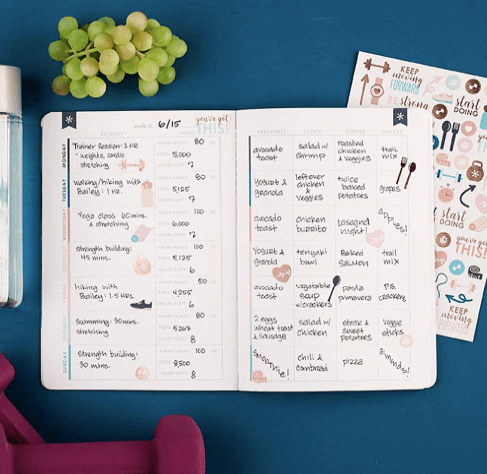 you've got
THIS!
6/15
ACTIVITY
BREAKFAST
LUNCH
DINNER
SNACKS
MONDAY
Trainer Session: 1 HR
- weights, cardio
stretching
80
5,000
7
avocado
toast
salad w/
shrimp
roasted
chicken
& veggies
trail
mix
TUESDAY
Walking/hiking with
Bailey: 1 HR.
80
5,125
7
Yogurt &
granola
leftover
chicken
&
veggies
twice
baked
potatoes
grapes
WEDNESDAY
Yoga class 60 mins.
& stretching
100
6,000
7
avocado
toast
chicken
burrito
lasagna
night!
apples!
strength building:
45 mins.
100
5,125
6
Yogurt &
granola
teriyaki
bowl
Baked
salmon
trail
mix
hiking with
Bailey: 1.5 HRS.
80
6
avocado
toast
vegetable
soup
w/crackers
pasta
primavera
P.B.
crackers
Swimming: 30 mins.
stretching
80
8
2 eggs
wheat toast
& sausage
salad w/
chicken
steak &
sweet
potatoes
veggie
sticks
SUNDAY
Strength building:
30 mins.
100
8,500
8
smoothie!
chili &
cornbread
pizza
almonds!
KEEP
moving
FORWARD
BE strong
start
DOING
start
DOING
you've got
THIS!
KEEP
moving
FORWARD